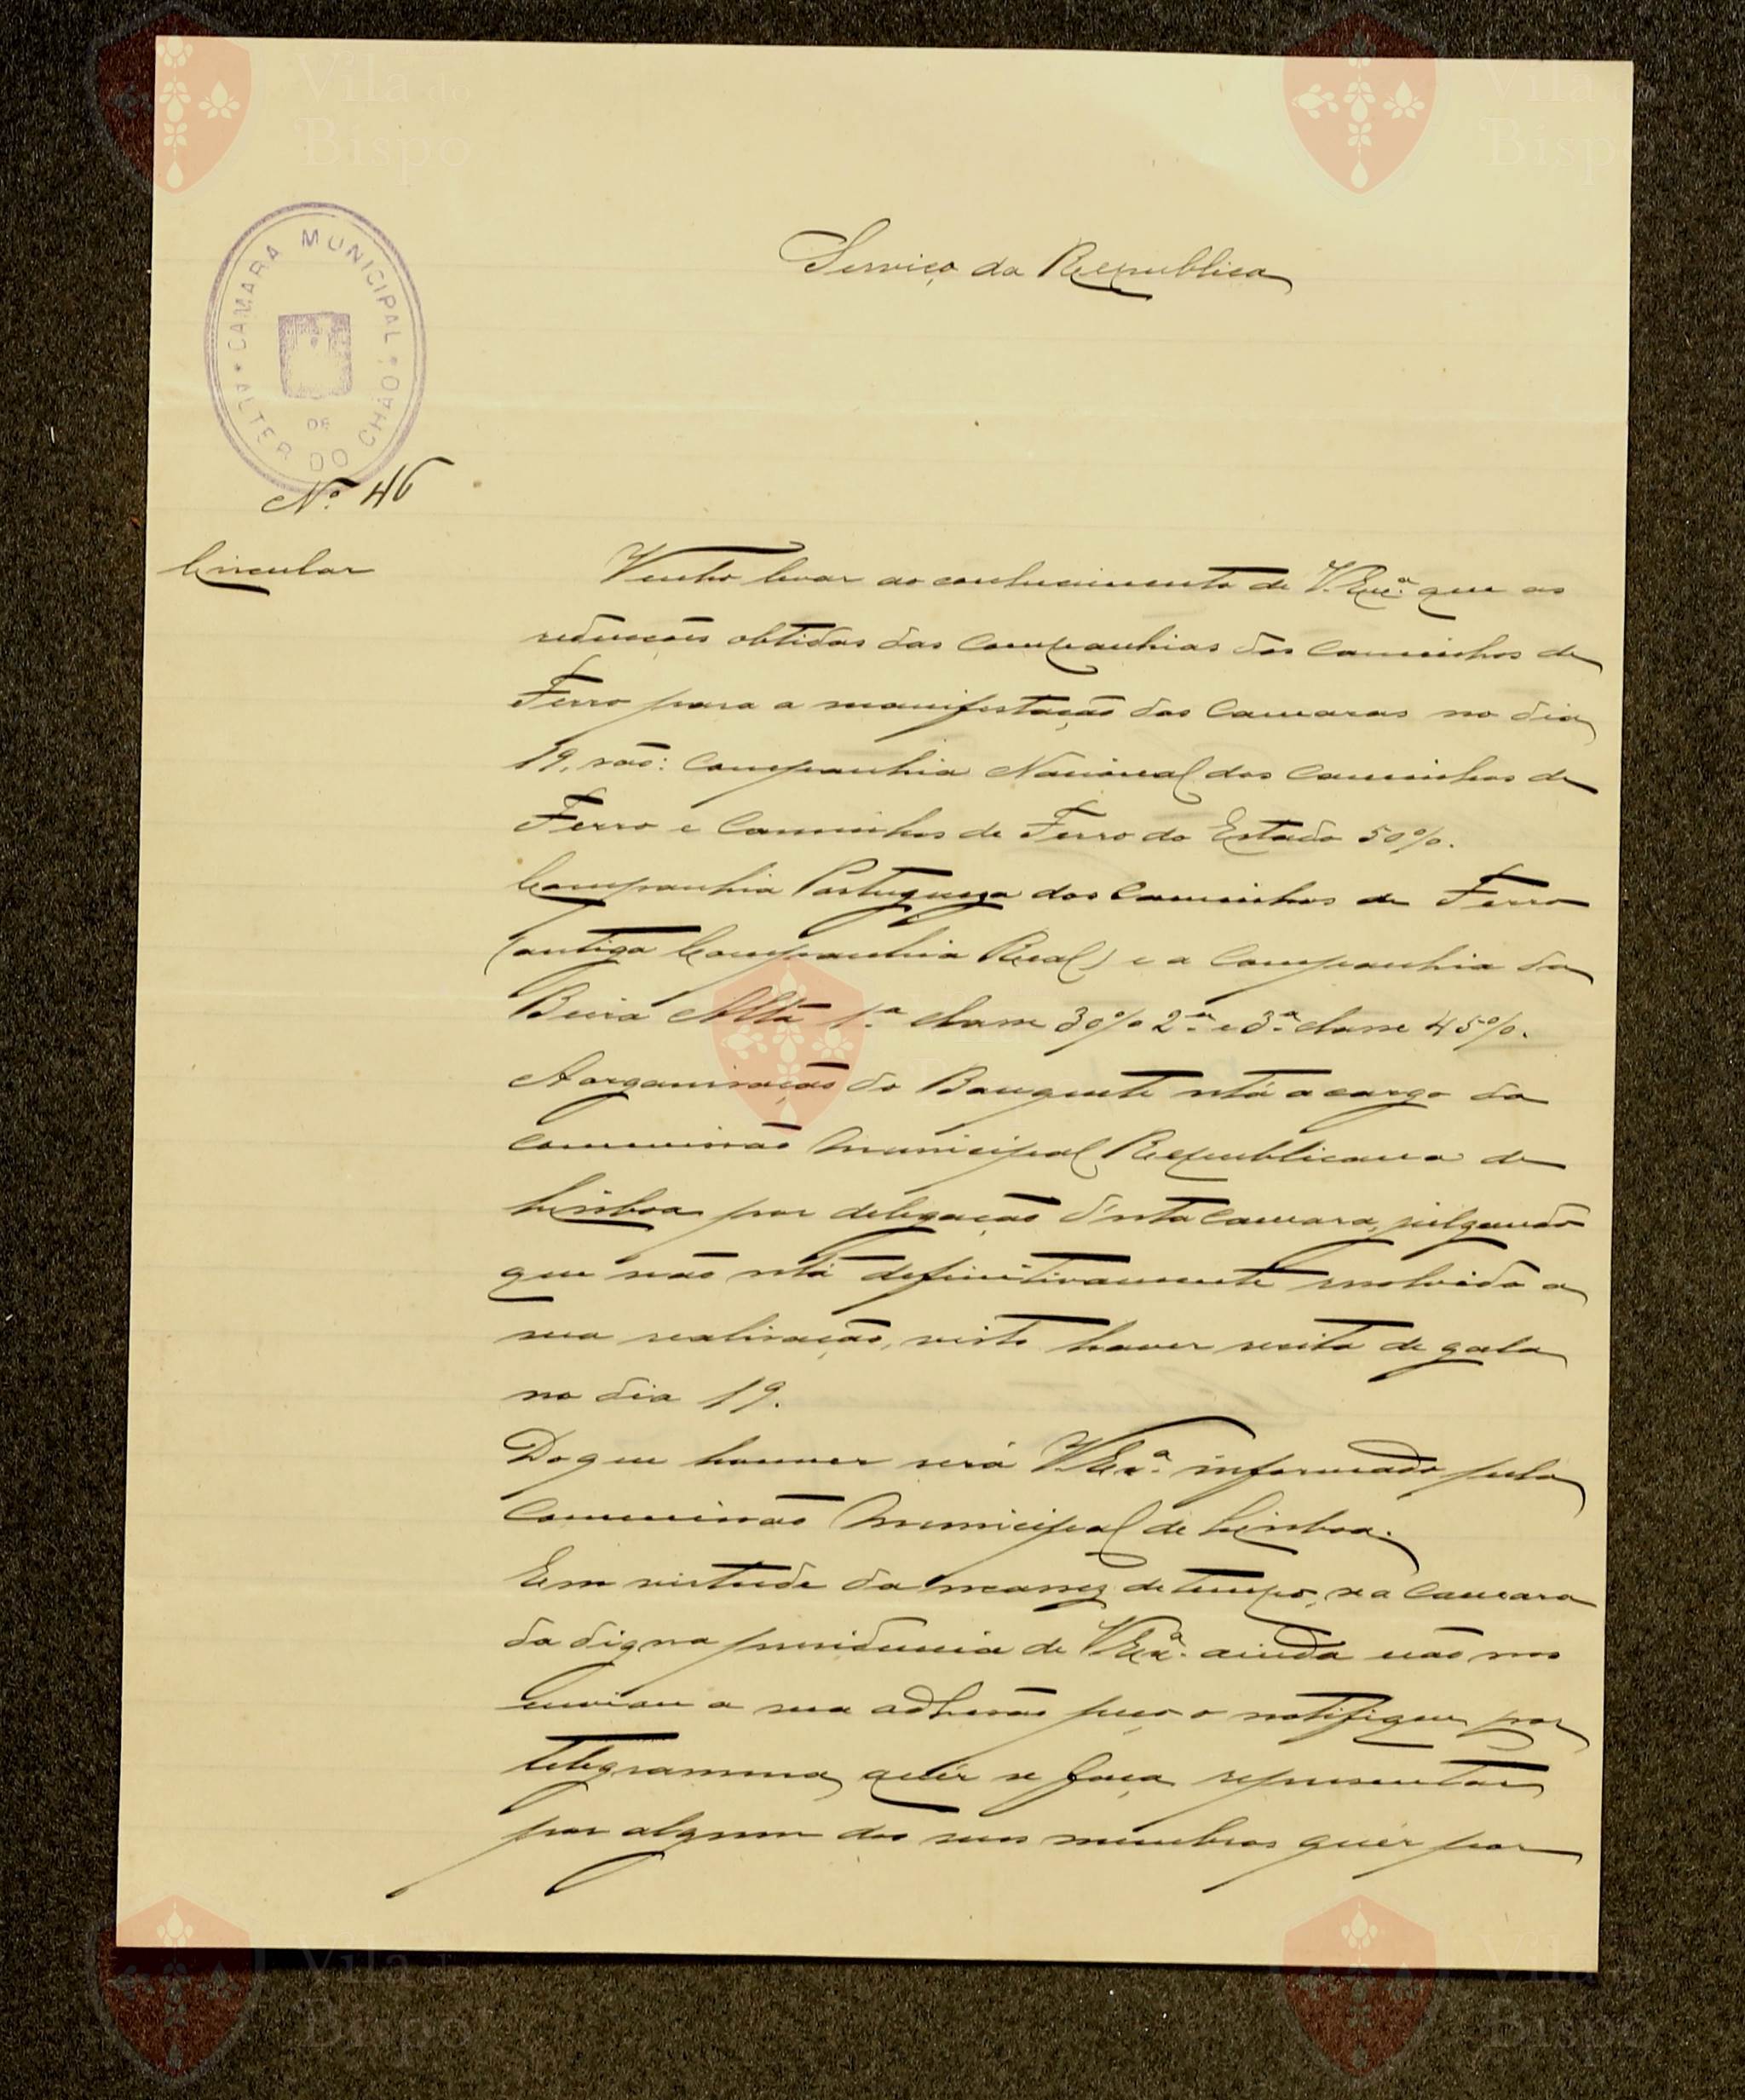 Vila do
Bispo
Vila do
Bispo
CAMARA MUNICIPAL
DE
ALTER DO CHÃO
Serviço da Republica
Nº 46
Circular
Venho levar ao conhecimento de V. Excª. que as
reducções obtidas das Companhias dos Caminhos de
Ferro para a manifestação das Camaras no dia
19, são: Companhia Nacional dos Caminhos de
Ferro e Caminhos de Ferro do Estado 50%.
Companhia Portugueza dos Caminhos de Ferro
(antiga Companhia Real) e a Companhia da
Beira Alta 1.ª classe 30% 2.ª e 3.ª classe 45%.
A organisação do Banquete está a cargo da
Commissão Municipal Republicana de
Lisboa por delegação d'esta Camara, julgando
que não está definitivamente resolvida a
sua realisação, visto haver recita de gala
no dia 19.
Do que houver será V. Exª. informado pela
Commissão Municipal de Lisboa.
Em virtude da escassez de tempo, se a Camara
da digna presidencia de V. Exª. ainda não nos
enviou a sua adhesão peço o notifique por
telegramma, quér se faça representar
por algum dos seus membros quér por
Vila do
Bispo
Vila do
Bispo